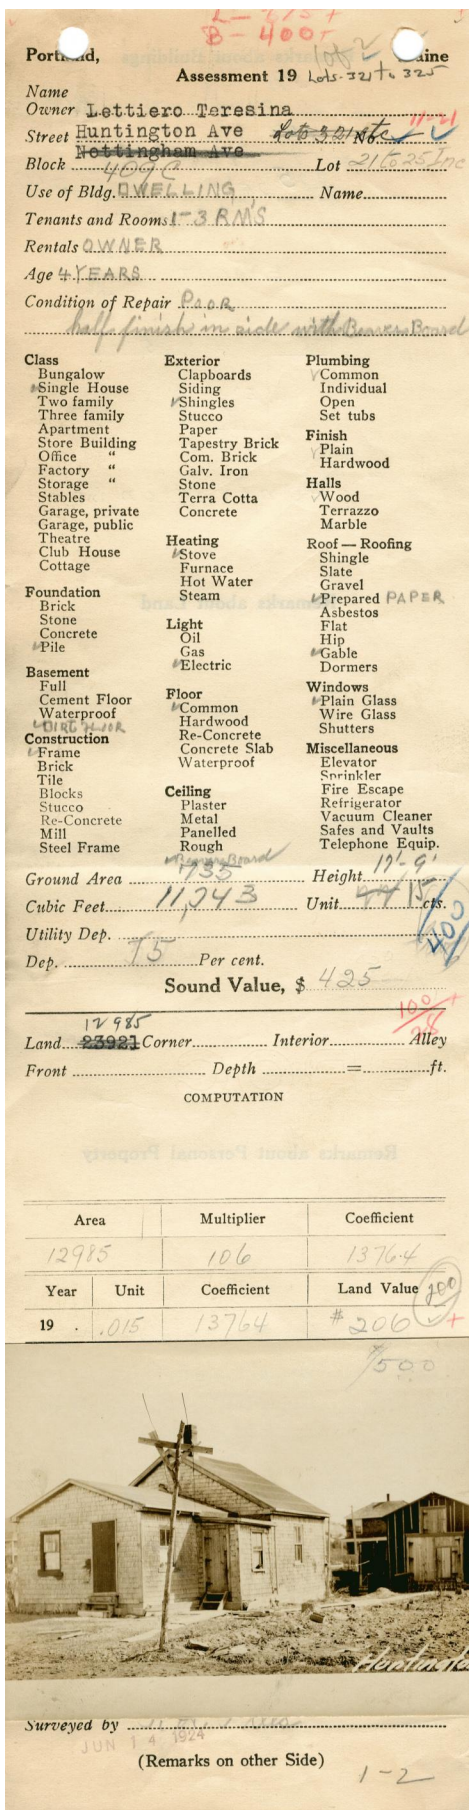 L - 275 +
B - 400 +
Portland, Lot 2 Maine
Assessment 19 Lots-321 to 325
Name
Owner Lettiero Teresina
Street Huntington Ave Lots 321 etc No. 11-21
Nottingham Ave
Block 409 C Lot 21 to 25 Inc
Use of Bldg. DWELLING Name
Tenants and Rooms 1-3 RMS
Rentals OWNER
Age 4 YEARS
Condition of Repair POOR
half finish in side with Beaver Board
Class
Bungalow
Single House
Two family
Three family
Apartment
Store Building
Office "
Factory "
Storage "
Stables
Garage, private
Garage, public
Theatre
Club House
Cottage
Foundation
Brick
Stone
Concrete
Pile
Basement
Full
Cement Floor
Waterproof
DIRT FLOOR
Construction
Frame
Brick
Tile
Blocks
Stucco
Re-Concrete
Mill
Steel Frame
Exterior
Clapboards
Siding
Shingles
Stucco
Paper
Tapestry Brick
Com. Brick
Galv. Iron
Stone
Terra Cotta
Concrete
Heating
Stove
Furnace
Hot Water
Steam
Light
Oil
Gas
Electric
Floor
Common
Hardwood
Re-Concrete
Concrete Slab
Waterproof
Ceiling
Plaster
Metal
Panelled
Rough
Beaver Board
Plumbing
Common
Individual
Open
Set tubs
Finish
Plain
Hardwood
Halls
Wood
Terrazzo
Marble
Roof — Roofing
Shingle
Slate
Gravel
Prepared PAPER
Asbestos
Flat
Hip
Gable
Dormers
Windows
Plain Glass
Wire Glass
Shutters
Miscellaneous
Elevator
Sprinkler
Fire Escape
Refrigerator
Vacuum Cleaner
Safes and Vaults
Telephone Equip.
Ground Area 735 Height
Cubic Feet 11,243 Unit 15 cts.
Utility Dep.
400
Dep. 75 Per cent.
Sound Value, $ 425
100 +
12985
Land 23921 Corner Interior Alley
Front Depth = ft.
COMPUTATION
Remarks about Personal Property
Area Multiplier Coefficient
12985 106 13764
Year Unit Coefficient Land Value 200
19 . .015 13764 $ 206 +
$500
Surveyed by
JUN 14 1924
(Remarks on other Side)
1-2